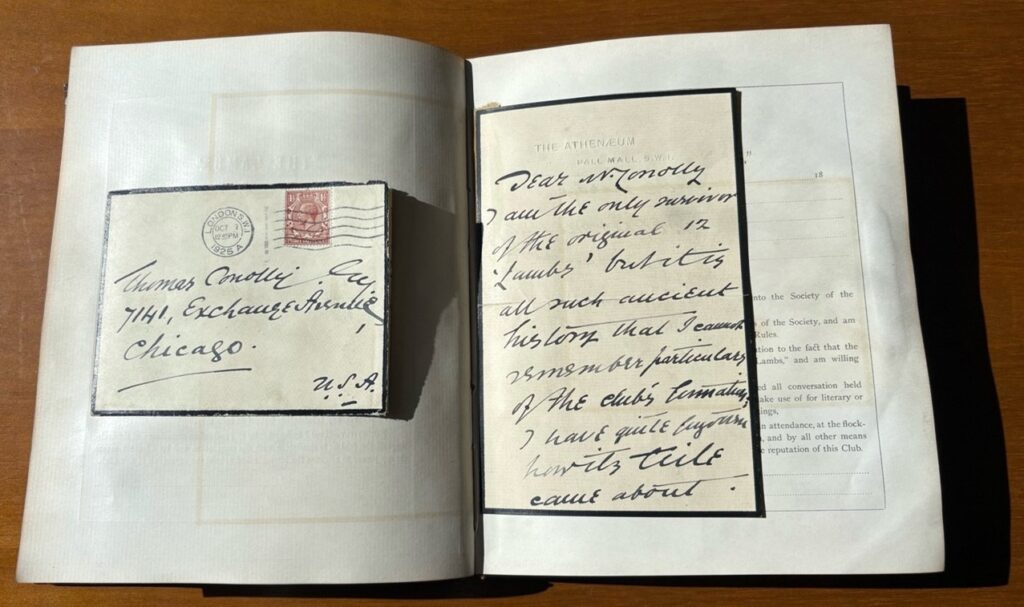 LONDON.S.W.1
OCT 3
1925 A
Thomas Conolly Esq
7141, Exchange Avenue
Chicago.
U.S.A.
THE ATHENÆUM
PALL MALL, S.W.1
Dear Mr Conolly
I am the only survivor
of the original 12
'Lambs' but it is
all such ancient
history that I cannot
remember particulars
of the club's formation,
I have quite forgotten
how its title
came about.
"
18
into the Society of the
of the Society, and am
Rules.
tion to the fact that the
Lambs," and am willing
ed all conversation held
ake use of for literary or
ings,
n attendance, at the flock-
, and by all other means
e reputation of this Club.